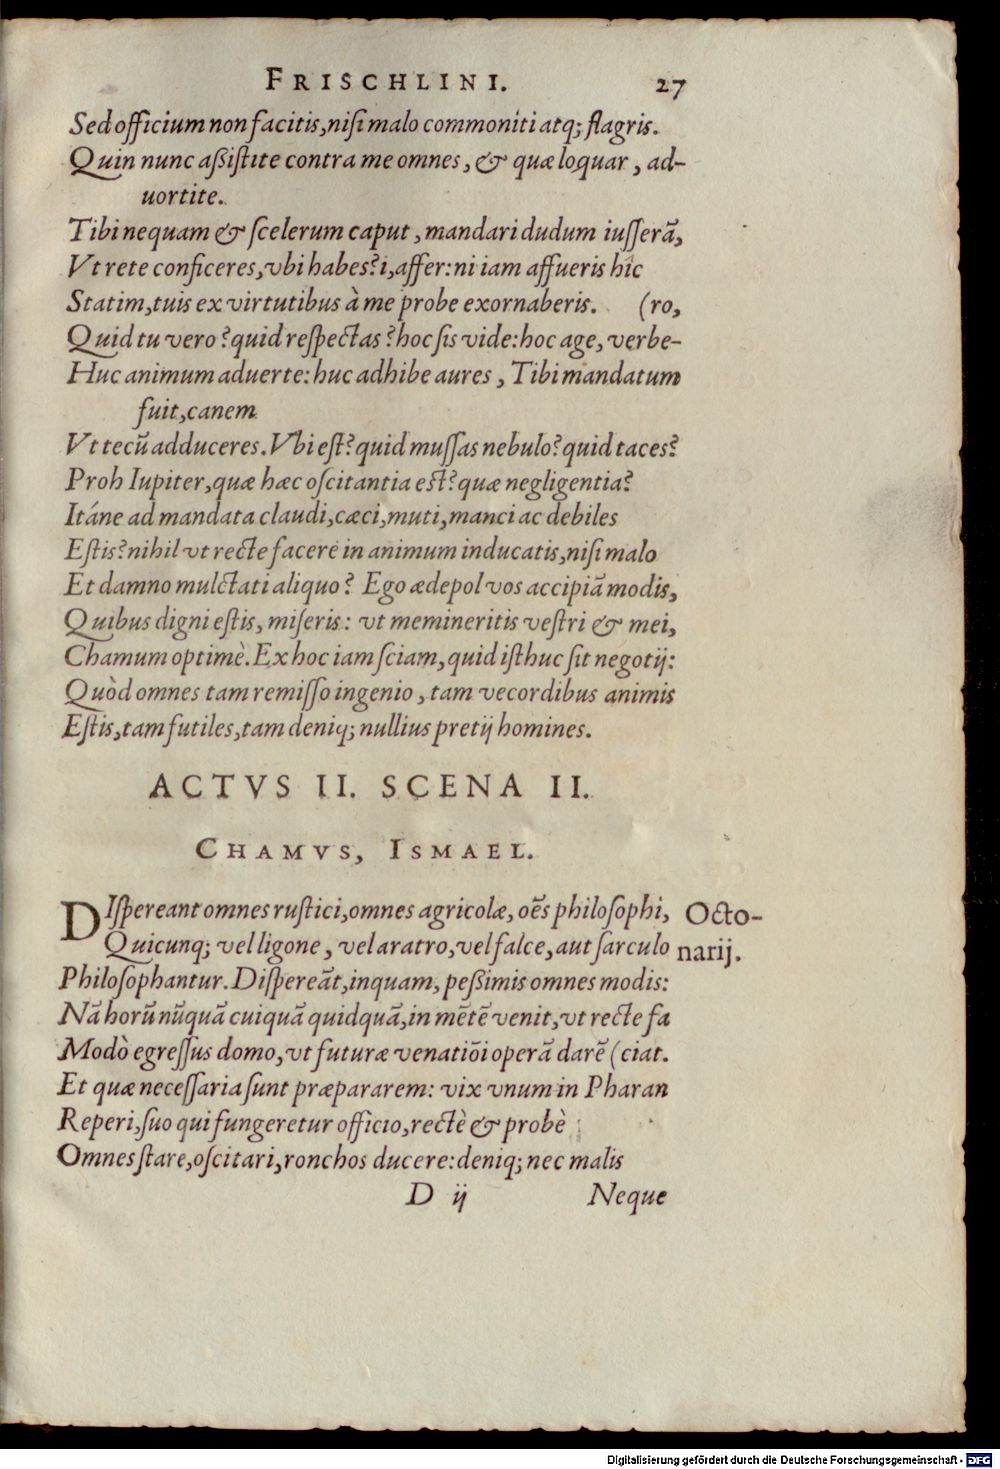 FRISCHLINI. 27
Sed officium non facitis, nisi malo commoniti atq; flagris.
Quin nunc aßistite contra me omnes, & quæ loquar, ad-
uortite.
Tibi nequam & scelerum caput, mandari dudum iusserã,
Vt rete conficeres, vbi habes? i, affer: ni iam affueris hîc
Statim, tuis ex virtutibus à me probe exornaberis. (ro,
Quid tu vero? quid respectas? hoc sis vide: hoc age, verbe-
Huc animum aduerte: huc adhibe aures, Tibi mandatum
fuit, canem
Vt tecũ adduceres. Vbi est? quid mussas nebulo? quid taces?
Proh Iupiter, quæ hæc oscitantia est? quæ negligentia?
Itáne ad mandata claudi, cæci, muti, manci ac debiles
Estis? nihil vt recte facere in animum inducatis, nisi malo
Et damno mulctati aliquo? Ego ædepol vos accipiã modis,
Quibus digni estis, miseris: vt memineritis vestri & mei,
Chamum optimè. Ex hoc iam sciam, quid isthuc sit negotij:
Quòd omnes tam remisso ingenio, tam vecordibus animis
Estis, tam futiles, tam deniq; nullius pretij homines.
ACTVS II. SCENA II.
CHAMVS, ISMAEL.
DIspereant omnes rustici, omnes agricolæ, oẽs philosophi, Octo-
Quicunq; vel ligone, vel aratro, vel falce, aut sarculo narij.
Philosophantur. Dispereãt, inquam, peßimis omnes modis:
Nã horũ nũquã cuiquã quidquã, in mẽtẽ venit, vt recte fa
Modò egressus domo, vt futuræ venatiõi operã darẽ (ciat.
Et quæ necessaria sunt præpararem: vix vnum in Pharan
Reperi, suo qui fungeretur officio, rectè & probè
Omnes stare, oscitari, ronchos ducere: deniq; nec malis
D ij Neque
Digitalisierung gefördert durch die Deutsche Forschungsgemeinschaft - DFG